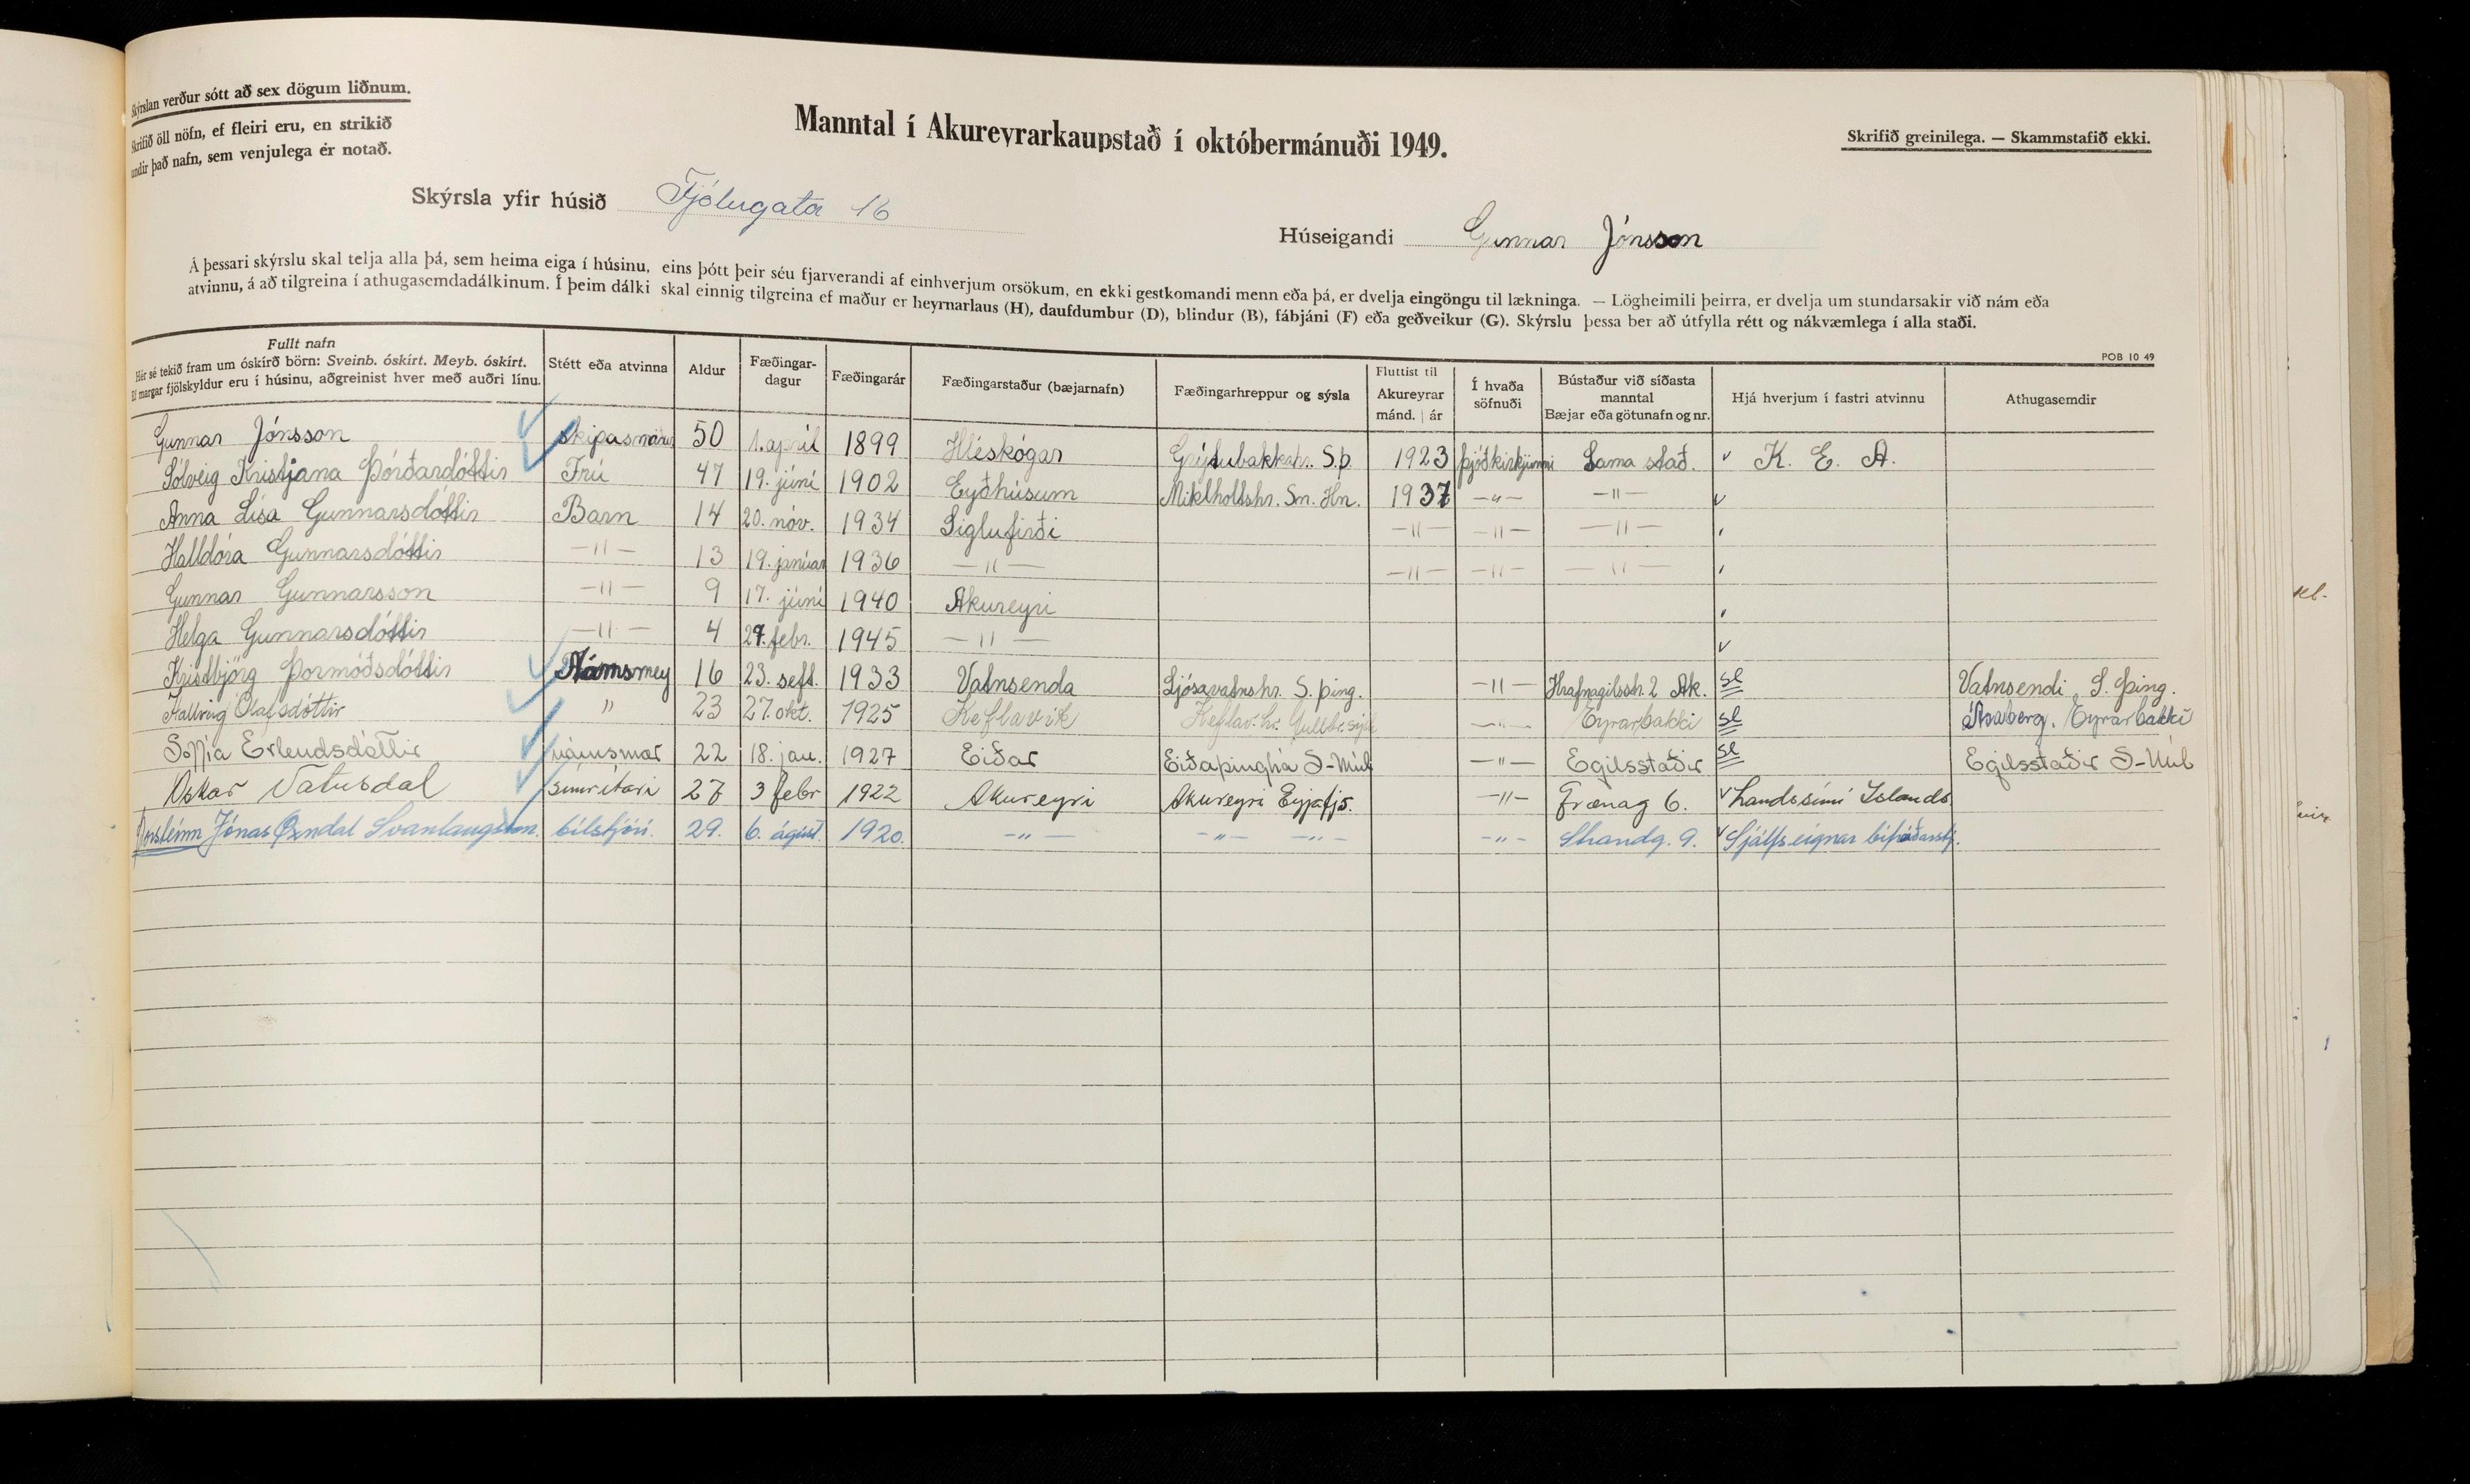 Skýrslan verður sótt að sex dögum liðnum.
Skrifið öll nöfn, ef fleiri eru, en strikið
undir það nafn, sem venjulega er notað.
Manntal í Akureyrarkaupstað í októbermánuði 1949.
Skrifið greinilega. — Skammstafið ekki.
Skýrsla yfir húsið Fjólugata 16
Húseigandi Gunnar Jónsson
Á þessari skýrslu skal telja alla þá, sem heima eiga í húsinu, eins þótt þeir séu fjarverandi af einhverjum orsökum, en ekki gestkomandi menn eða þá, er dvelja eingöngu til lækninga. — Lögheimili þeirra, er dvelja um stundarsakir við nám eða
atvinnu, á að tilgreina í athugasemdadálkinum. Í þeim dálki skal einnig tilgreina ef maður er heyrnarlaus (H), daufdumbur (D), blindur (B), fábjáni (F) eða geðveikur (G). Skýrslu þessa ber að útfylla rétt og nákvæmlega í alla staði.
POB 10 49
Fullt nafn
Hér sé tekið fram um óskírð börn: Sveinb. óskírt. Meyb. óskírt.
Ef margar fjölskyldur eru í húsinu, aðgreinist hver með auðri línu.
Stétt eða atvinna
Aldur
Fæðingar-
dagur
Fæðingarár
Fæðingarstaður (bæjarnafn)
Fæðingarhreppur og sýsla
Fluttist til
Akureyrar
mánd. | ár
Í hvaða
söfnuði
Bústaður við síðasta
manntal
Bæjar eða götunafn og nr.
Hjá hverjum í fastri atvinnu
Athugasemdir
Gunnar Jónsson 50 1. apríl 1899 Hléskógar Grýtubakkahr. S.þ. 1923 þjóðkirkjunni Sama stað. K. E. A.
Sólveig Kristjana Þórðardóttir Frú 47 19. júní 1902 Eyðhúsum Miklholtshr. Sn. Hn. 1937 —"— —"—
Anna Lísa Gunnarsdóttir Barn 14 20. nóv. 1934 Siglufirði —"— —"— —"—
Halldóra Gunnarsdóttir —"— 13 19. janúar 1936 —"— —"— —"— —"—
Gunnar Gunnarsson —"— 9 17. júní 1940 Akureyri
Helga Gunnarsdóttir —"— 4 febr. 1945 —"—
Kristbjörg Þormóðsdóttir Námsmey 16 23. sept. 1933 Vatnsenda Ljósavatnshr. S. þing. —"— Hrafnagilsstr. 2 Ak. sl Vatnsendi S. Þing.
Hallveig Ólafsdóttir " 23 27. okt. 1925 Keflavík Keflav. hr. Gullbr. sýsl —"— Eyrarbakki sl Ásaberg. Eyrarbakki
Soffía Erlendsdóttir námsmær 22 18. jan. 1927 Eiðar Eiðaþinghá S-Múl —"— Egilsstaðir sl Egilsstaðir S-Múl
Óskar Vatnsdal símritari 27 3 febr 1922 Akureyri Akureyri Eyjafjs. —"— Frænag 6. Landssími Islands
Þorsteinn Jónas Øxndal Svanlaugsson. bílstjóri. 29. 6. ágúst. 1920. —"— —"— —"— —"— Strandg. 9. Sjálfseignar bifreiðarstj.